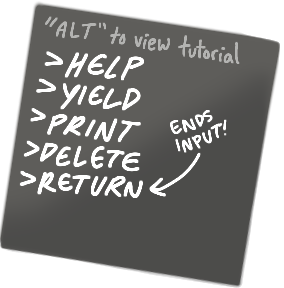 "ALT" to view tutorial
>HELP
>YIELD
>PRINT
>DELETE
>RETURN
ENDS
INPUT!